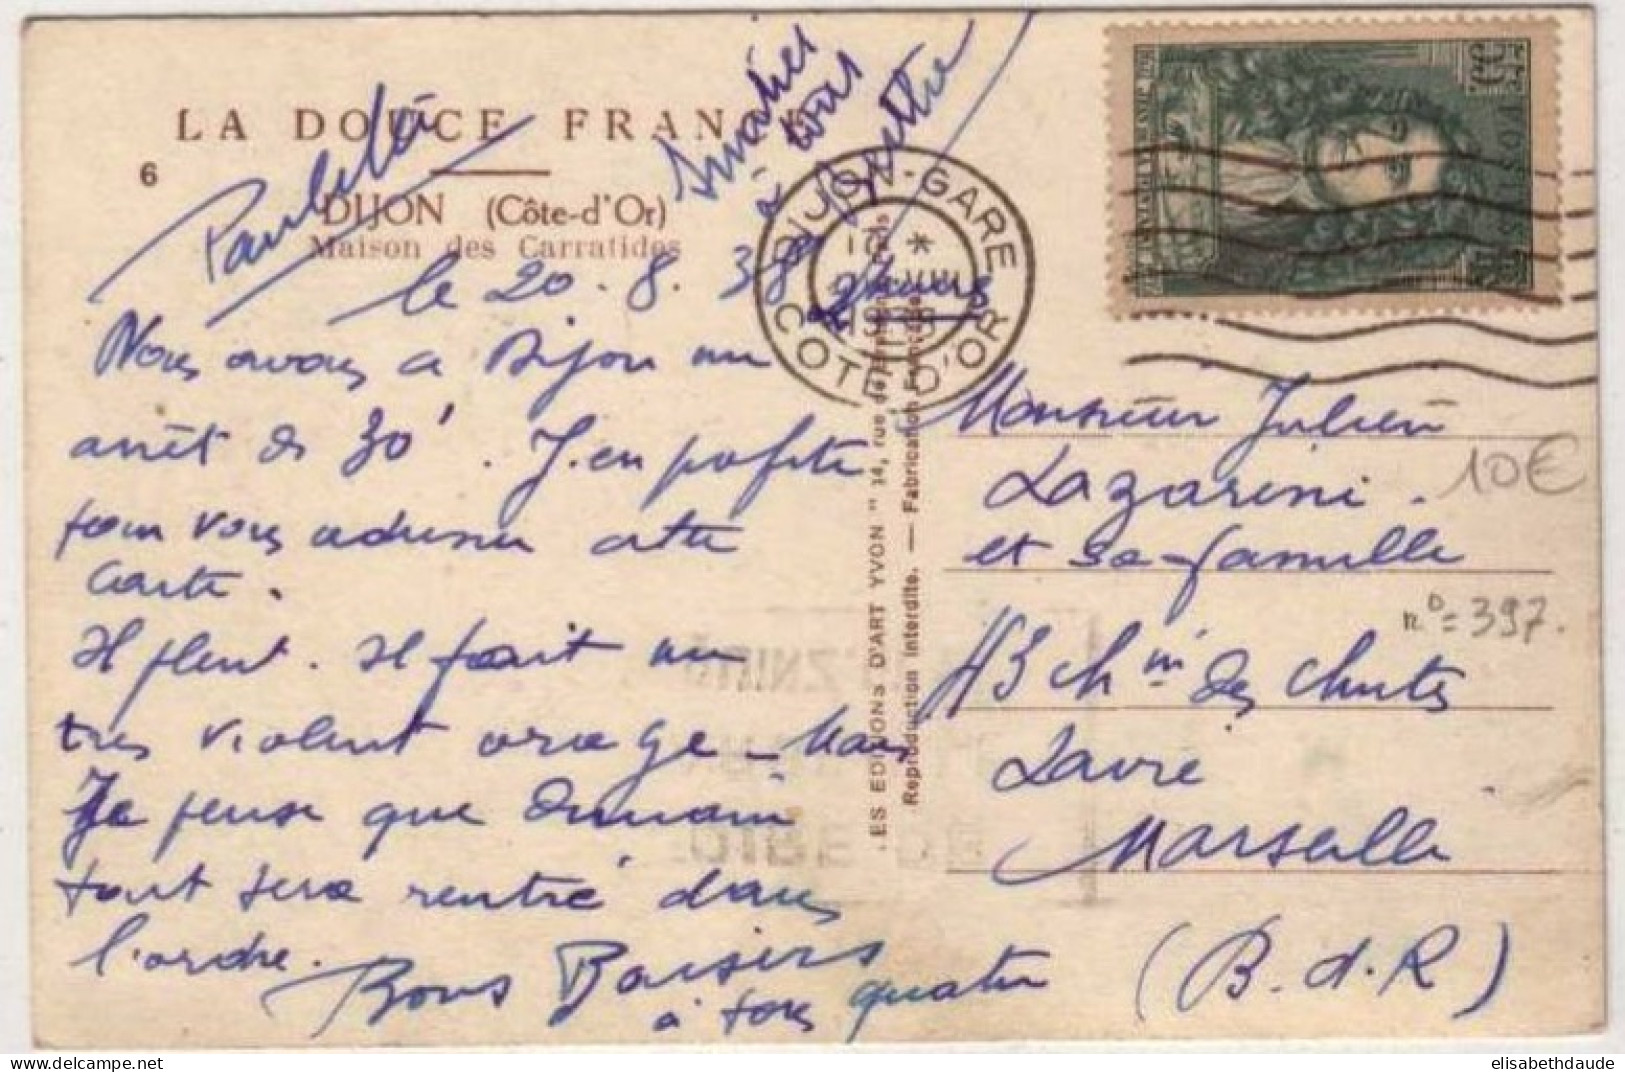 LA DOUCE FRANCE
6
DIJON (Côte-d'Or)
Maison des Carratides
Paulette
Amitiés
à tous
le 20.8.38
2 heures
Nous avons à Dijon un
arrêt de 30'. J'en profite
pour vous adresser cette
carte.
Il pleut. Il fait un
très violent orage - Mais
Je pense que demain
tout sera rentré dans
l'ordre.
Bons Baisers
à tous quatre
DIJON-GARE
COTE D'OR
LES EDITIONS D'ART YVON" 14, rue
Reproduction interdite. — Fabrication Française
POSTES
Monsieur Julien
Lazarini
et sa famille
10€
n°=397.
43 chin des chutes
Lavie
Marseille
(B.d.R)
elisabethdaude